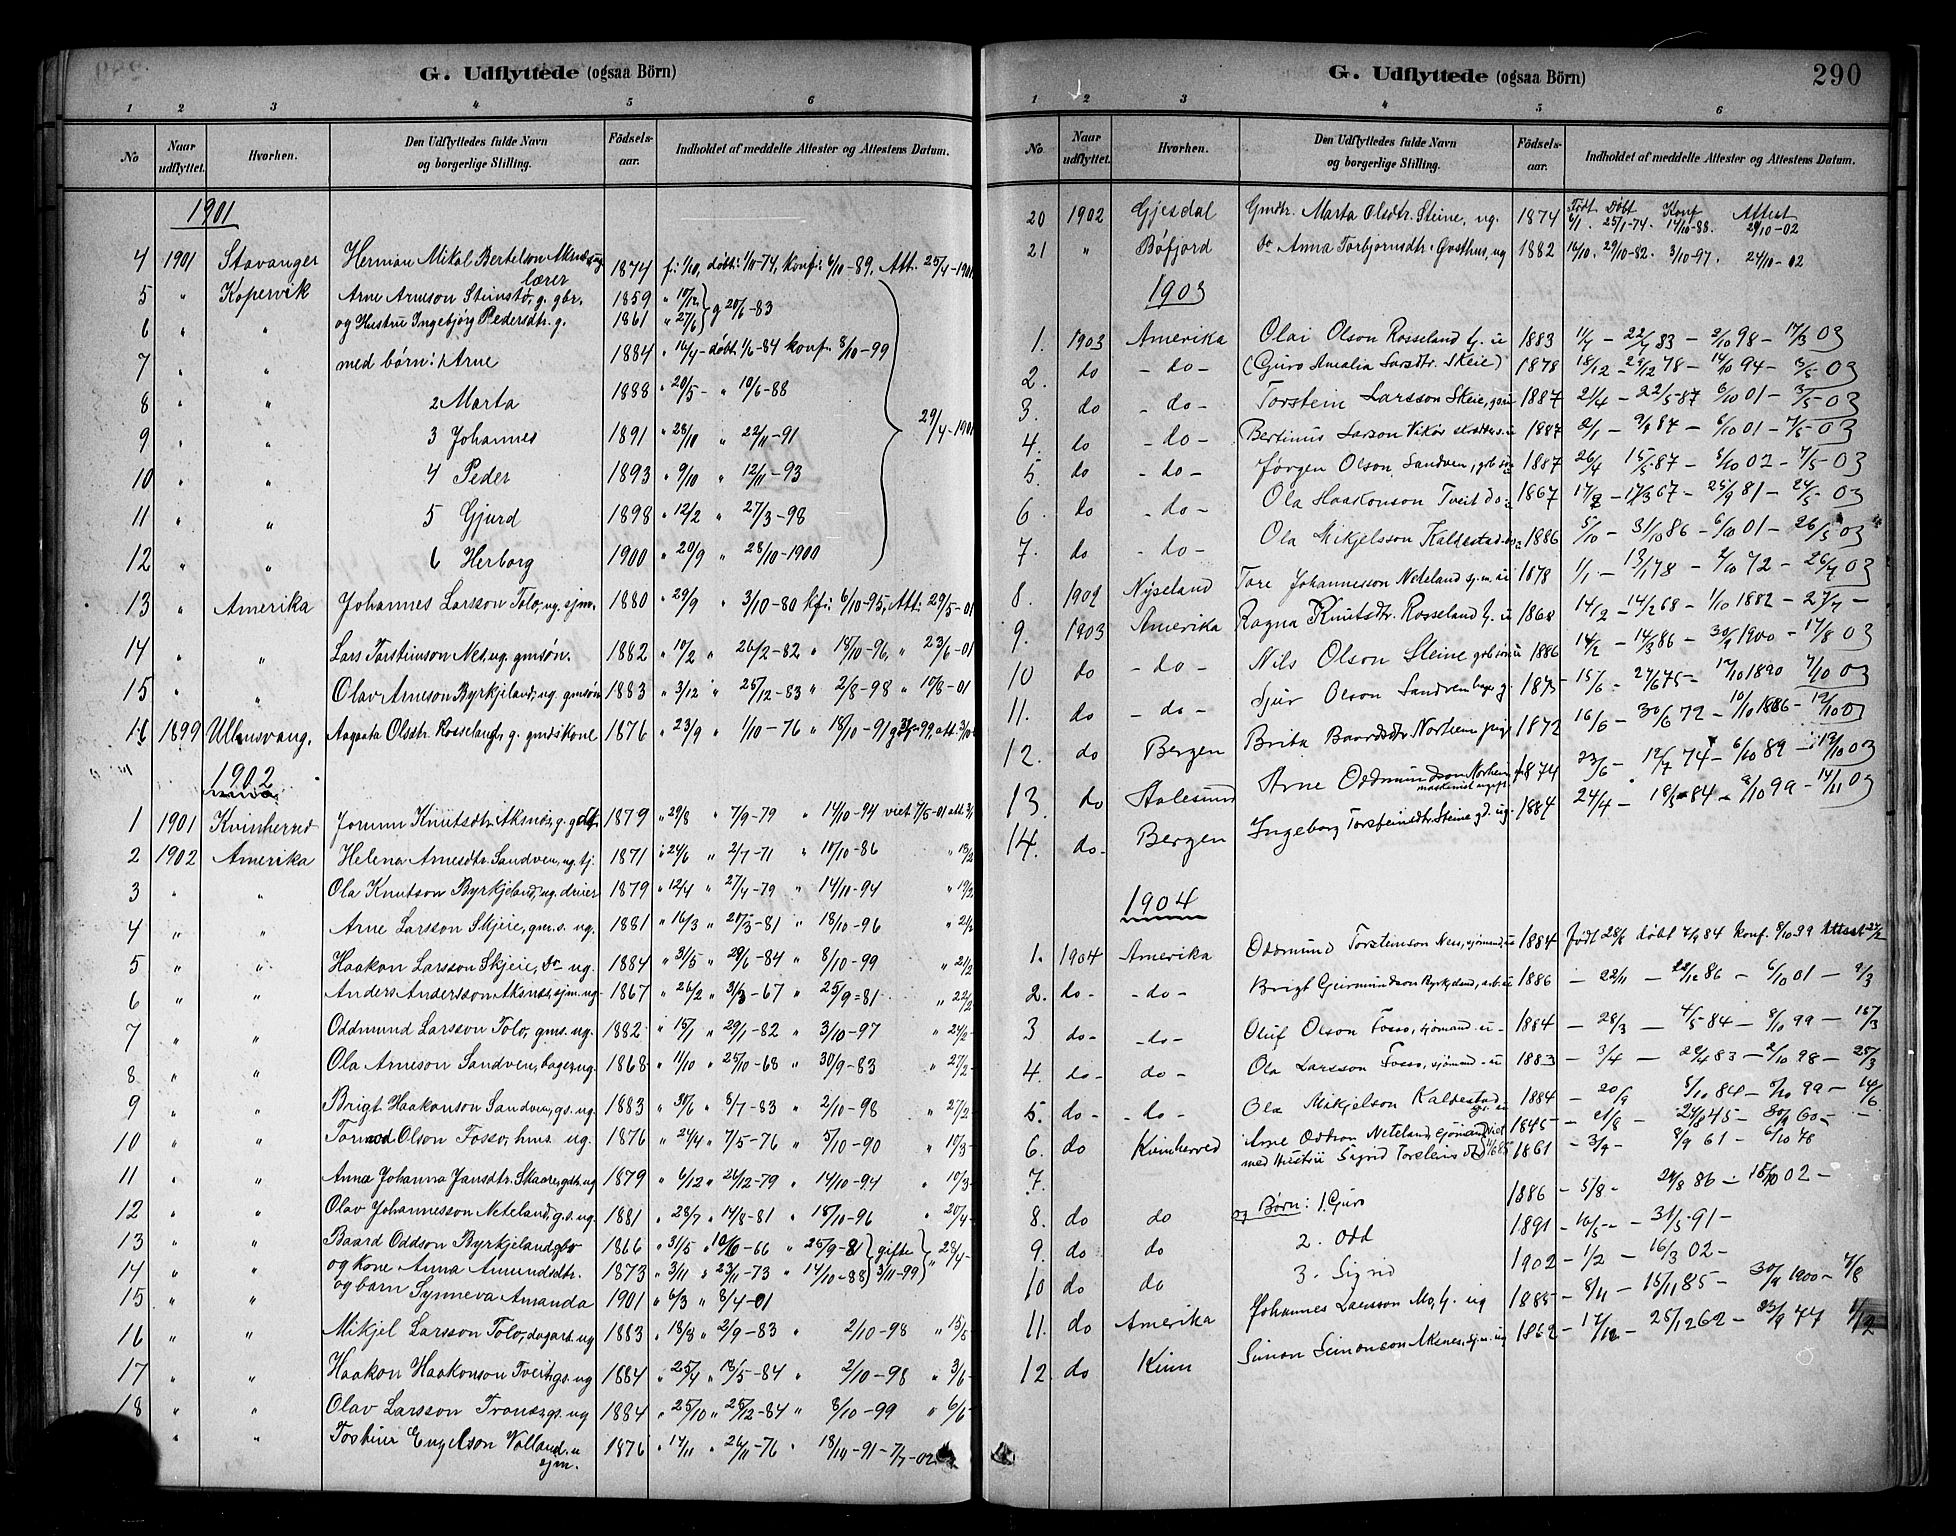 G. Udflyttede (ogsaa Börn)
1 2 3 4 5 6
No Naar udflyttet. Hvorhen. Den Udflyttedes fulde Navn og borgerlige Stilling. Födsels-aar. Indholdet af meddelte Attester og Attestens Datum.
1901
4 1901 Stavanger Herman Mikal Bertelson Aksnes, ug. lærer 1874 f: 1/10, döbt: 1/11-74, konf: 6/10-89, Att: 25/4-1901
5 " Kopervik Arne Arneson Steinstø, g. gbr. 1859 " 10/12 } g 20/6-83
6 " " og Hustru Ingebjörg Pedersdtr. g. 1861 " 27/6
7 " " med børn: 1 Arne 1884 " 16/4 - døbt 1/6-84 konf. 8/10-99
8 " " 2 Marta 1888 " 20/5 - " 10/6-88
9 " " 3 Johannes 1891 " 28/10 " 22/11-91 29/4-1901
10 " " 4 Peder 1893 " 9/10 " 12/11-93
11 " " 5 Gjurd 1898 " 12/2 " 27/3-98
12 " " 6 Herborg 1900 " 20/9 " 28/10-1900
13 " Amerika Johannes Larsson Tolo, ug. sjm. 1880 " 29/9 " 3/10-80 kfi: 6/10-95, Att: 29/5-01
14 " " Lars Torsteinson Nes, ug. gmsön. 1882 " 10/2 " 26/2-82 " 18/10-96, " 23/6-01
15 " " Olav Arneson Byrkjeland, ug. gmsön 1883 " 3/12 " 25/12-83 " 2/8-98 " 10/8-01
16 1899 Ullensvang. Aagaata Olsdtr. Rosseland, g. gmdskone 1876 " 23/9 " 1/10-76 " 18/10-91
1902
1 1901 Kvinherred Jorunn Knutsdtr. Aksnes, g. 1879 " 29/8 " 7/9-79 " 14/10-94 viet 7/5-01
2 1902 Amerika Helena Arnesdtr. Sandven, ug. tj. 1871 " 24/6 " 2/7-71 " 10/10-86
3 " " Ola Knutson Byrkjeland, ug. dreier 1879 " 12/4 " 27/4-79 " 14/10-94
4 " " Arne Larsson Skjeie, gm.s. ug. 1881 " 16/3 " 20/3-81 " 18/10-96 " 21/2
5 " " Haakon Larsson Skjeie, do ug. 1884 " 31/5 " 29/6-84 " 8/10-99 " 21/2
6 " " Anders Andersson Aksnes, sjm. ug. 1867 " 26/2 " 31/3-67 " 25/9-81 " 22/2
7 " " Oddmund Larsson Tolo, gms. ug. 1882 " 15/1 " 29/1-82 " 3/10-97 " 24/2-
8 " " Ola Arneson Sandven, bager, ug. 1868 " 11/10 " 25/10-68 " 30/9-83 " 27/2-
9 " " Brigt Haakonson Sandven, gs. ug. 1883 " 30/6 " 8/7-83 " 2/10-98 " 27/2-
10 " " Tormod Olson Fosso, hms. ug. 1876 " 24/4 " 7/5-76 " 5/10-90 " 10/3-
11 " " Anna Johanna Jansdtr. Skaare, gdtr. ug 1879 " 6/12 " 26/12-79 " 14/10-94 " 10/3-
12 " " Olav Johannesson Neteland, g.s. ug. 1881 " 28/7 " 14/8-81 " 18/10-96 " 20/4-
13 " " Baard Oddson Byrkjeland gbr 1866 " 31/5 " 10/6-66 " 25/9-81 } gifte
14 " " og kone Anna Amundsdtr. 1873 " 3/11 " 23/11-73 " 14/10-88 } 3/11-99 } " 28/4-
15 " " og barn Synneva Amanda 1901 " 6/3 " 8/4-01
16 " " Mikjel Larsson Tolo, dagarb. ug 1883 " 18/8 " 2/9-83 " 2/10-98 " 15/5
17 " " Haakon Haakonson Tveit, gs. ug 1884 " 25/4 " 18/5-84 " 2/10-98 " 3/6-
18 " " Olav Larsson Tronæs, gs. ug 1884 " 25/10 " 25/12-84 " 8/10-99 " 6/6-
" " Engelson Valland u sjm. 1876 " 14/11 " 26/11-76 " 18/10-91 - 7/7-02
G. Udflyttede (ogsaa Börn) 290
1 2 3 4 5 6
No Naar udflyttet. Hvorhen. Den Udflyttedes fulde Navn og borgerlige Stilling. Födsels-aar. Indholdet af meddelte Attester og Attestens Datum.
20 1902 Gjesdal Gmdtr. Marta Olsdtr. Steine, ug. 1874 Født 6/1. Döbt 25/1-74. Konf 14/10-88. Attest 29/10-02
21 " Bøfjord do Anna Torbjornsdtr. Gvsthus, ug 1882 16/10. 29/10-82. 3/10-97. 24/10-02
1903
1. 1903 Amerika Olai Olson Rosseland G. u 1883 1/7 - 22/7 83 - 2/10 98 - 17/3 03
2. do - do - (Guro Amalia Larsdtr. Skeie) 1878 18/12 - 29/12 78 - 14/10 94 - 3/5 - 03
3. do - do - Torstein Larsson Skeie, 1887 21/4 - 22/5-87 6/10 01 - 3/5 - 03
4. do - do - Bertinus Larson Vikör 1887 6/10 01 - 7/5 - 03
5. do - do - Jørgen Olson Sandven, gbsön 1887 26/4 15/5 87 - 5/10 02 - 7/5 - 03
6. do - do - Ola Haakonson Tveit do. 1867 17/2 - 17/3 67 - 25/9 81 - 24/5 - 03
7. do - do - Ola Mikjelsson Kaldestad 1886 5/10 - 31/10 86 - 6/10 01 - 26/5 03
8. 1902 Nyseland Tore Johannesson Neteland sj.m. u 1878 1/1 - 13/1 78 - 72 - 26/7 03
9. 1903 Amerika Ragna Knutsdtr. Rosseland G. u 1868 14/2 - 14/2 68 - 1/10 1882 - 27/7 -
10 do - do - Nils Olson Steine gbsön u 1886 14/2 - 14/3 86 - 30/9 1900 - 17/8 03
11. do - do - Sjur Olson Sandven bager g. 1875 15/6 - 27/6 75 - 17/10 1890 7/10 03
12. do Bergen Brita Baardsdtr. Norheim pige 1872 16/6 - 30/6 72 - 10/10 1886 - 12/10 03
13. do Aalesund Arne Oddmundson Norheim maskinist ug. 1874 23/6 - 12/7 74 - 6/10 89 - 19/10 03
14. do - Bergen Ingeborg Torsteinsdtr. Steine gd. ug 1884 24/4 - 18/5-84 - 8/10 99 - 14/11 03
1904
1. 1904 Amerika Oddmund Torsteinson Nes, sjömand, u 1884 født 28/8 døbt 7/9 84 konf. 8/10 99 Attest 27/2
2. do - - do - Brigt Geirmundson Byrkjeland, arb. u 1886 - 22/11 - 22/12 86 - 6/10 01 - 9/3
3 do - - do - Oluf Olson Fosso, sjömand. u - 1884 - 28/3 - 4/5 84 - 8/10 99 - 15/3
4. do - do - Ola Larsson Fosso, sjömand - u 1883 - 3/4 - 29/4 83 - 2/10 98 - 25/3
5. do - - do - Ola Mikjelson Kaldestad 1884 - 20/9 5/10 84 - 8/10 99 - 14/6
6. do Kvinherred Arne Oddson Neteland, sjömand viet 1845 - 21/8 - 24/8 45 - 30/9 60 -
7. med Hustru Sigrid Torsteinsdtr 1861 - 3/9 - 8/9 61 - 6/10 78
8. do do og Børn: 1. Guro 1886 - 5/8 - 24/8 86 - 02 -
9. do do 2. Odd 1891 - 10/5 - - 31/5-91 -
10 do do 3. Sigrid 1902 - 1/2 - 16/3 02 -
11. do Amerika Johannes Larsson Mo, G. ug 1885 - 8/11 - 15/11 85 - 30/9 1900 - 7/8
12. do Kinn Simon Simonson Aksnes, sjm. ug 1862 - 17/12 - 25/12 62 - 23/9 77